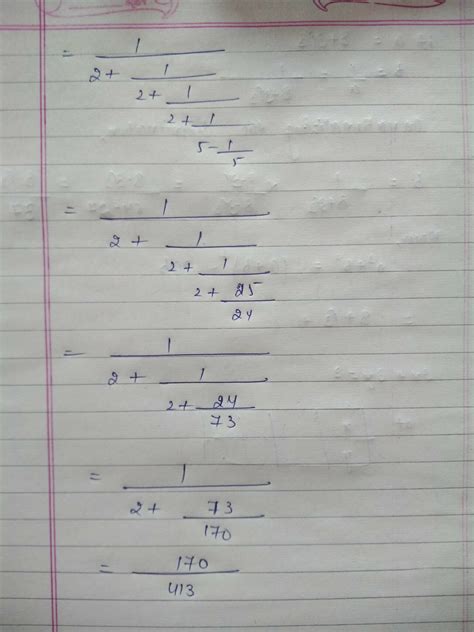 = 1
2 + 1
2 + 1
2 + 1
5 - 1
5
= 1
2 + 1
2 + 1
2 + 25
24
= 1
2 + 1
2 + 24
73
= 1
2 + 73
170
= 170
413